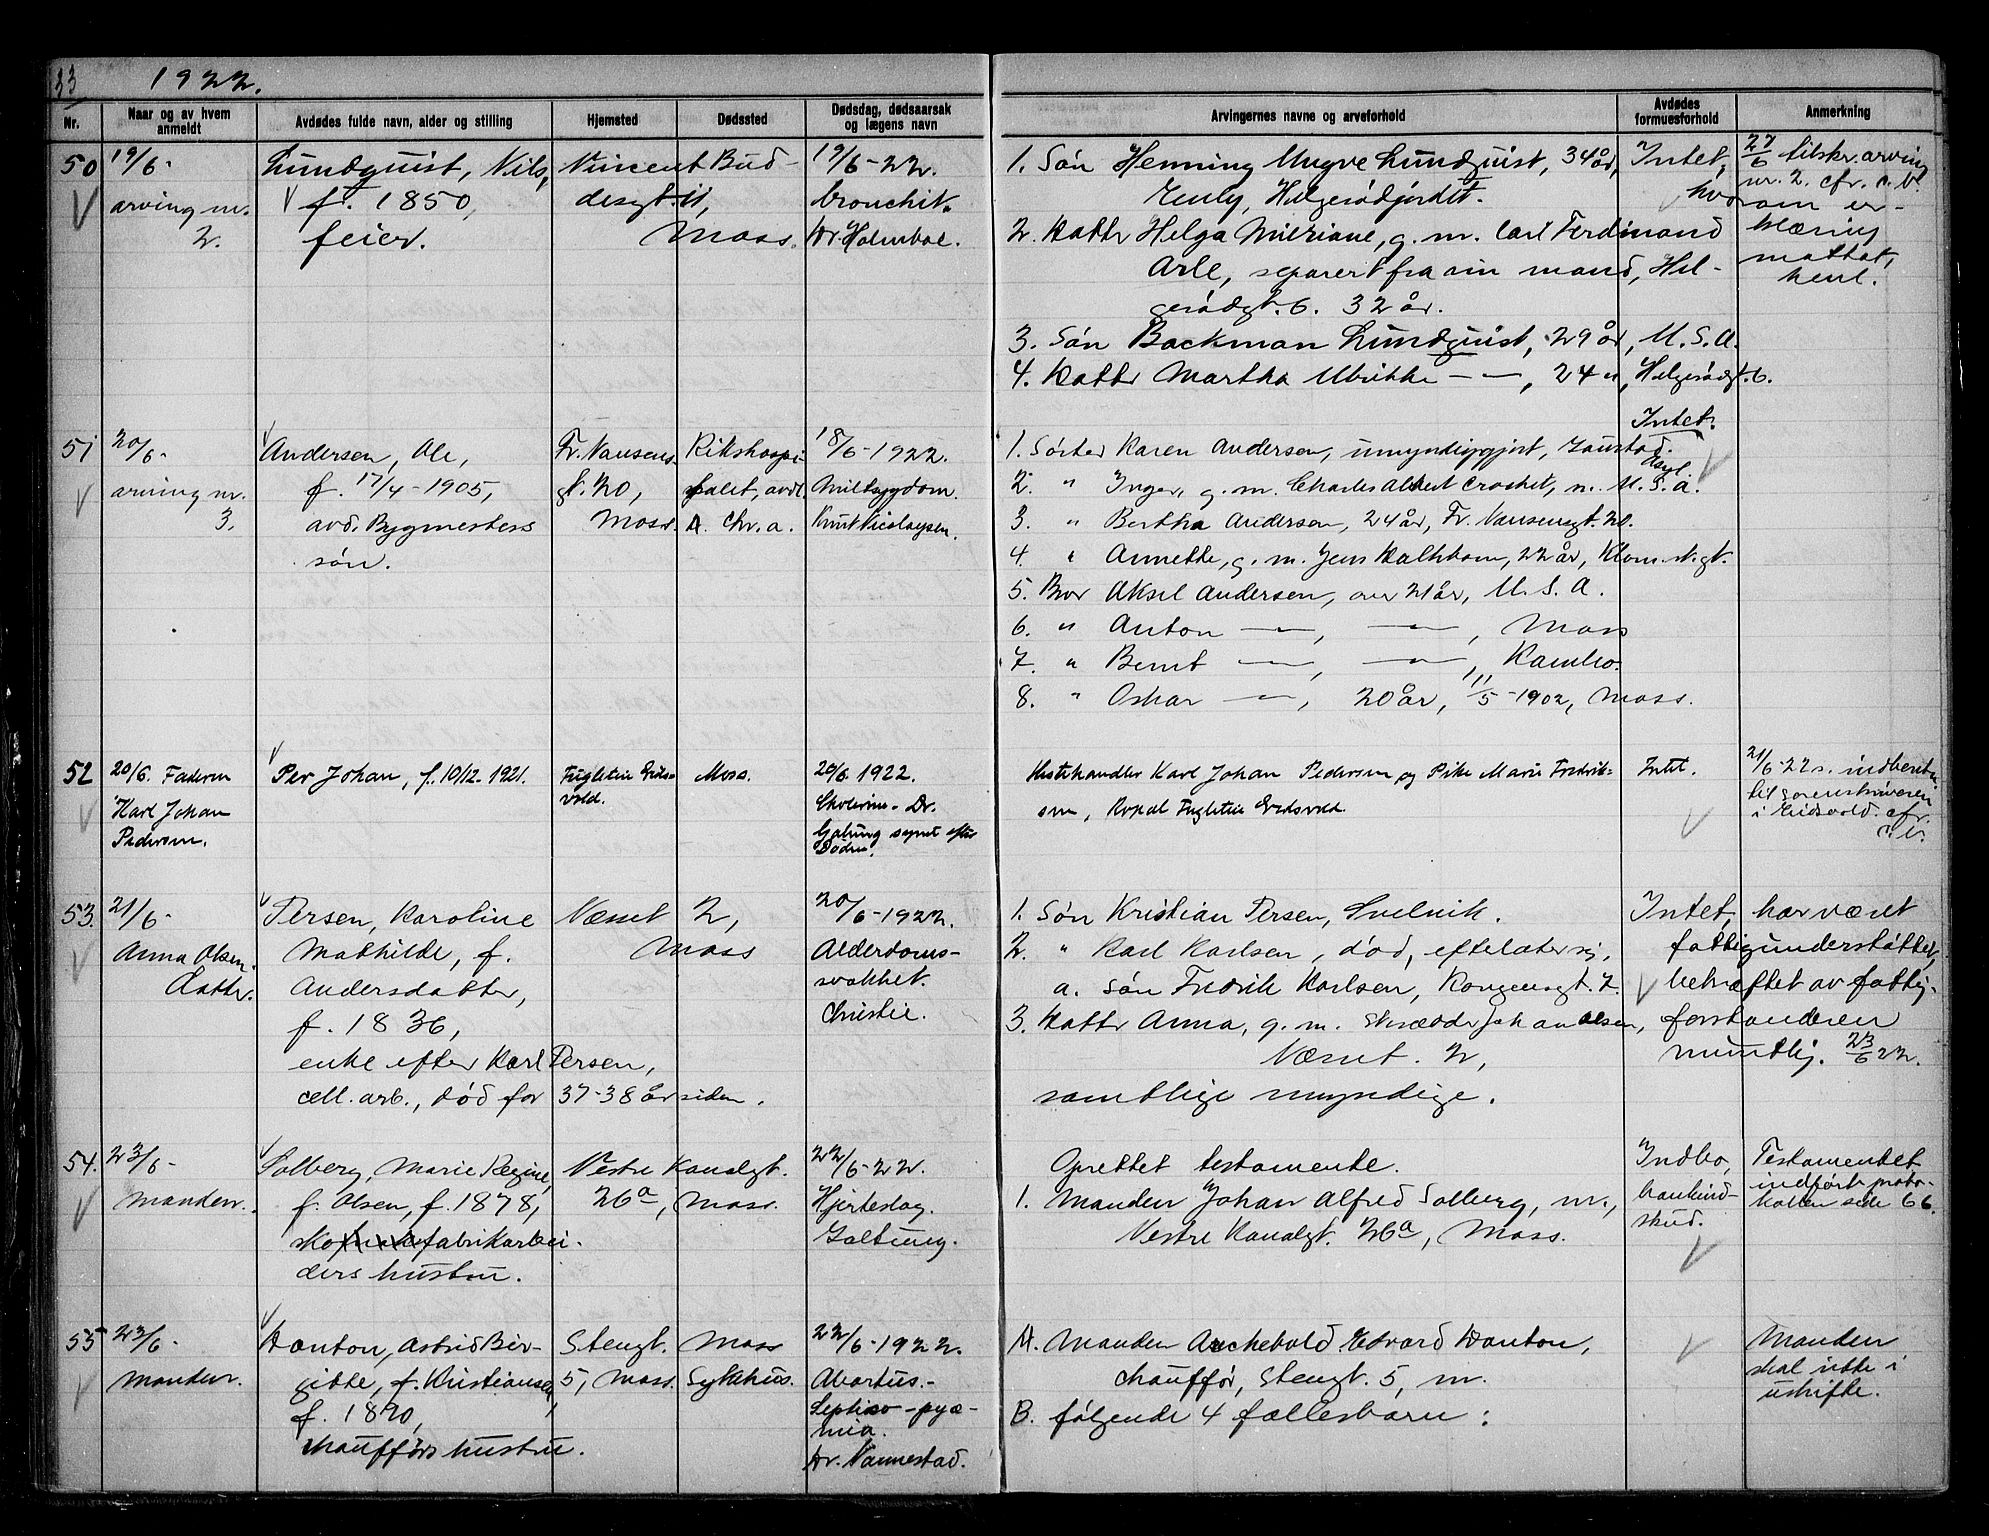 33 1922.
Nr.
Naar og av hvem anmeldt
Avdødes fulde navn, alder og stilling
Hjemsted
Dødssted
Dødsdag, dødsaarsak og lægens navn
Arvingernes navne og arveforhold
Avdødes formuesforhold
Anmerkning
50
19/6-
arving nr.
2.
Lundquist, Nils,
f. 1850,
feier.
Vincent Bud-
desgt. 11,
Moss.
19/6-22.
bronchit.
Dr. Holmboe.
1. Søn Henning Yngve Lundquist, 34 år,
Enely, Helgerødjordet.
2. Datter Helga Miriane, g. m. Carl Ferdinand
Arle, separert fra sin mand, Hel-
gerødgt. 6. 32 år.
3. Søn Backman Lundquist, 29 år, U.S.A.
4. Datter Martha Ulrikke — " —, 24 ", Helgerødgt. 6.
Intet,
hvorom er-
klæring
mottat,
henl.
27/6 tilskr. arving
nr. 2. cfr. c. b.
51
20/6-
arving nr.
3.
Andersen, Ole,
f. 17/4-1905,
avd. Bygmesters
søn.
Fr. Nansens-
gt. 20,
Moss.
Rikshospi-
talet, avd.
A. Chr.a.
18/6-1922.
Miltsygdom.
Knut Nicolaysen.
1. Søster Karen Andersen, umyndiggjort, Gaustad
Asyl.
2. " Inger, g. m. Charles Albert Crocket, n. U.S.A.
3. " Bertha Andersen, 24 år, Fr. Nansensgt. 20.
4. " Annette, g. m. Jens Dalhkom, 22 år, Klom.st.gt.
5. Bror Aksel Andersen, over 21 år, U.S.A.
6. " Anton — " —, — " —, Moss
7. " Bernt — " —, — " —, Kambo.
8. " Oskar — " —, 20 år, 11/5-1902, Moss.
Intet.
52
20/6. Faderen
Karl Johan
Pedersen.
Per Johan, f. 10/12-1921.
Fugletie Eids-
vold.
Moss.
20/6 1922.
Cholerine. Dr.
Galtung synet efter
Døden.
Hestehandler Karl Johan Pedersen og Pike Marie Fredrik-
sen, Fugletie Eidsvold
Intet.
21/6-22 s. indberetn.
til sorenskriveren
i Eidsvold. cfr.
c. b.
53.
21/6-
Anna Olsen.
Datter.
Persen, Karoline
Mathilde, f.
Andersdatter,
f. 1836,
enke efter Karl Persen,
cell. arb., død for 37-38 år siden.
Værnet 2,
Moss
20/6-1922.
Alderdoms-
svakhet.
Christie.
1. Søn Kristian Persen, Svelvik.
2. " Karl Karlsen, død, efterlater sig,
a. Søn Fredrik Karlsen, Kongensgt. 7.
3. Datter Anna, g. m. Skrædder Johan Olsen,
Værnet. 2,
samtlige myndige.
Intet, har været
fattigunderstøttet,
bekræftet av fattig-
forstanderen
muntlig. 23/6 22.
54.
23/6-
manden.
Solberg, Marie Regine,
f. Olsen, f. 1878,
skofabrikarbei-
ders hustru.
Vestre Kanalgt.
26a, Moss.
22/6-22.
Hjerteslag.
Galtung.
Oprettet testamente.
1. Manden Johan Alfred Solberg, m.,
Vestre Kanalgt. 26a, Moss.
Indbo,
bankind-
skud.
Testamentet
indført i proto-
kollen side 66.
55
23/6-
manden.
Danton, Astrid Bir-
gitte, f. Kristiansen,
f. 1890,
chaufførs hustru.
Stengt.
5, Moss.
Moss
Sykehus.
22/6-1922.
Abortus.-
Septico-pyæ-
mia.
Dr. Vannestad.
A. Manden Archebold Edvard Danton,
chauffør, Stengt. 5, m.
B. følgende 4 fællesbarn:
Manden
skal sitte i
uskifte.